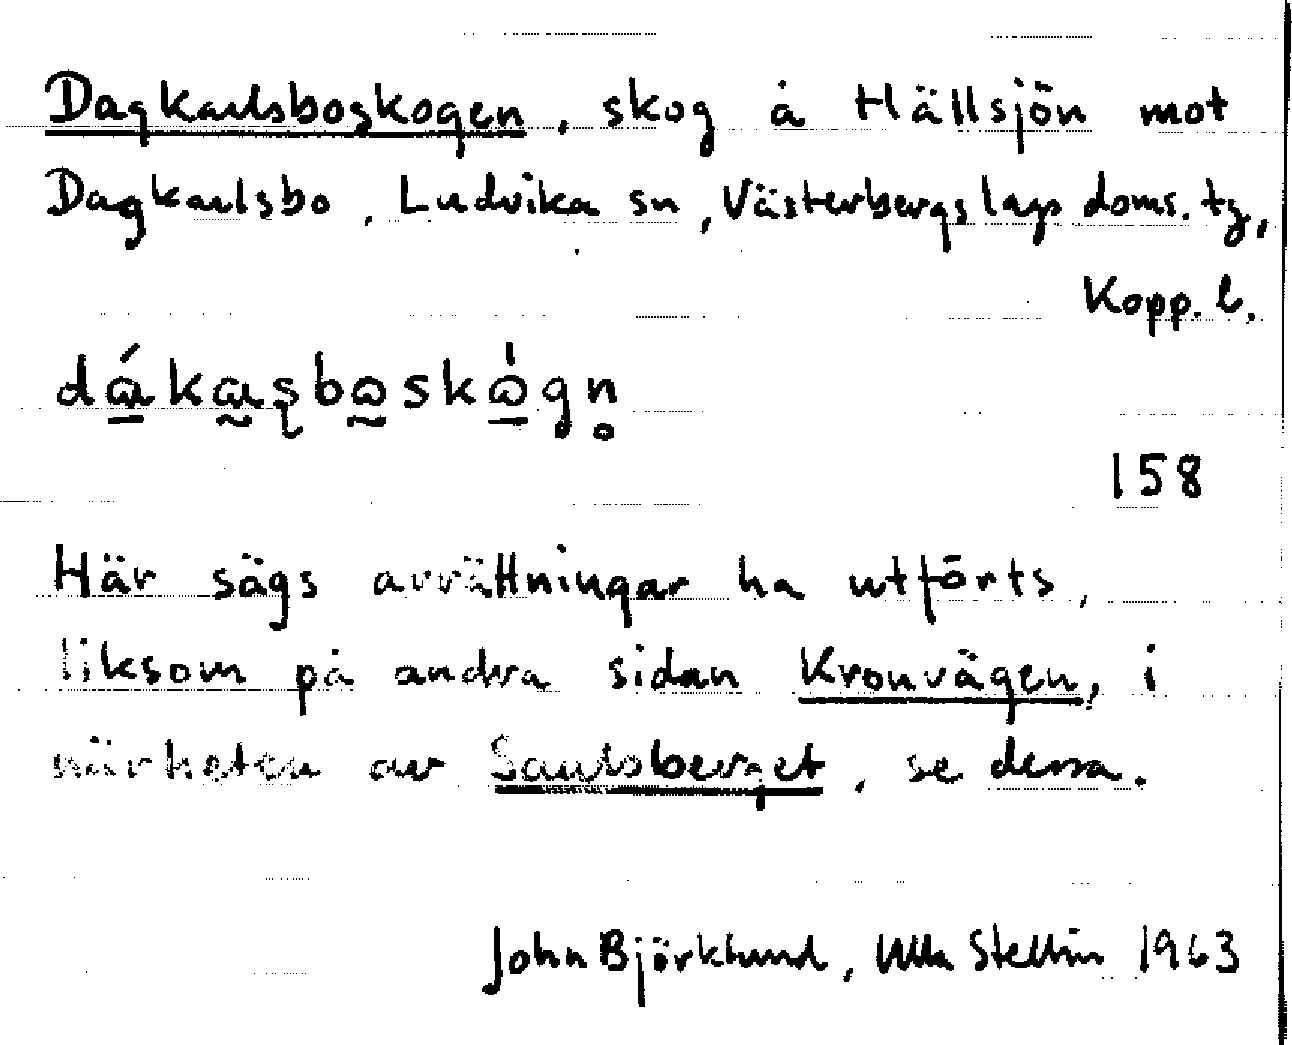 Dagkarlsboskogen, skog å Hällsjön mot
Dagkarlsbo, Ludvika sn, Västerbergslags doms. tg,
Kopp. l.
158
Här sägs avrättningar ha utförts,
liksom på andra sidan Kronvägen, i
närheten av Saulsberget, se dessa.
John Björklund, Ulla Stellin 1963